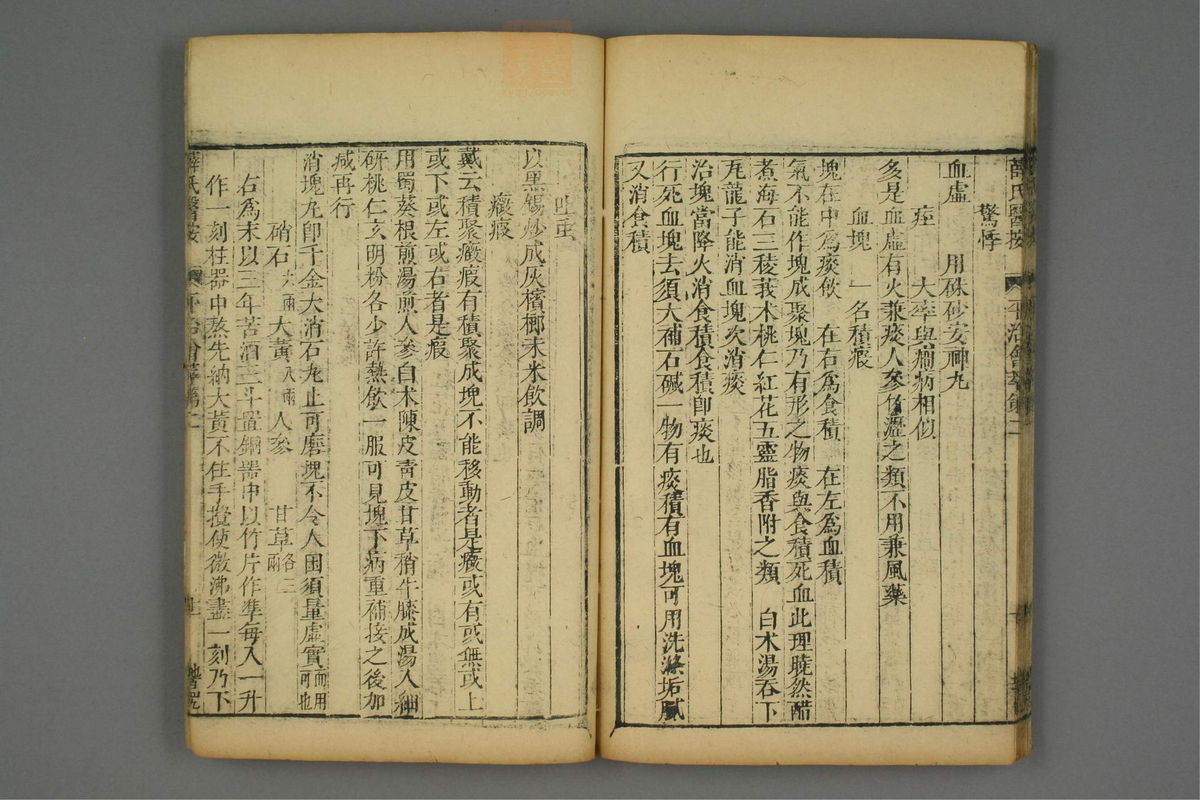 薛氏醫按 平治會萃卷二
驚悸
血虛 用硃砂安神丸
痓 大率與癇病相似
多是血虛有火兼痰人參竹瀝之類不用兼風藥
血塊 一名積瘕
塊在中爲痰飲 在右爲食積 在左爲血積
氣不能作塊成聚塊乃有形之物痰與食積死血此理曉然醋
煮海石三稜莪朮桃仁紅花五靈脂香附之類 白朮湯吞下
瓦龍子能消血塊次消痰
治塊當降火消食積食積卽痰也
行死血塊去須大補石碱一物有痰積有血塊可用洗滌垢膩
又消食積
吐䖝
以黑錫炒成灰檳榔末米飲調
癥瘕
戴云積聚癥瘕有積聚成塊不能移動者是癥或有或無或上
或下或左或右者是瘕
用蜀葵根煎湯煎人參白朮陳皮靑皮甘草稍牛膝成湯入細
研桃仁玄明粉各少許熱飲一服可見塊下病重補接之後加
减再行
消塊丸卽千金大消石丸止可磨塊不令人困須量虛實而用可也
硝石六兩大黃八兩 人參 甘草各三兩
右爲末以三年苦酒三斗置銅器中以竹片作準每入一升
作一刻柱器中熬先納大黃不住手攪使微沸盡一刻乃下
薛氏醫按